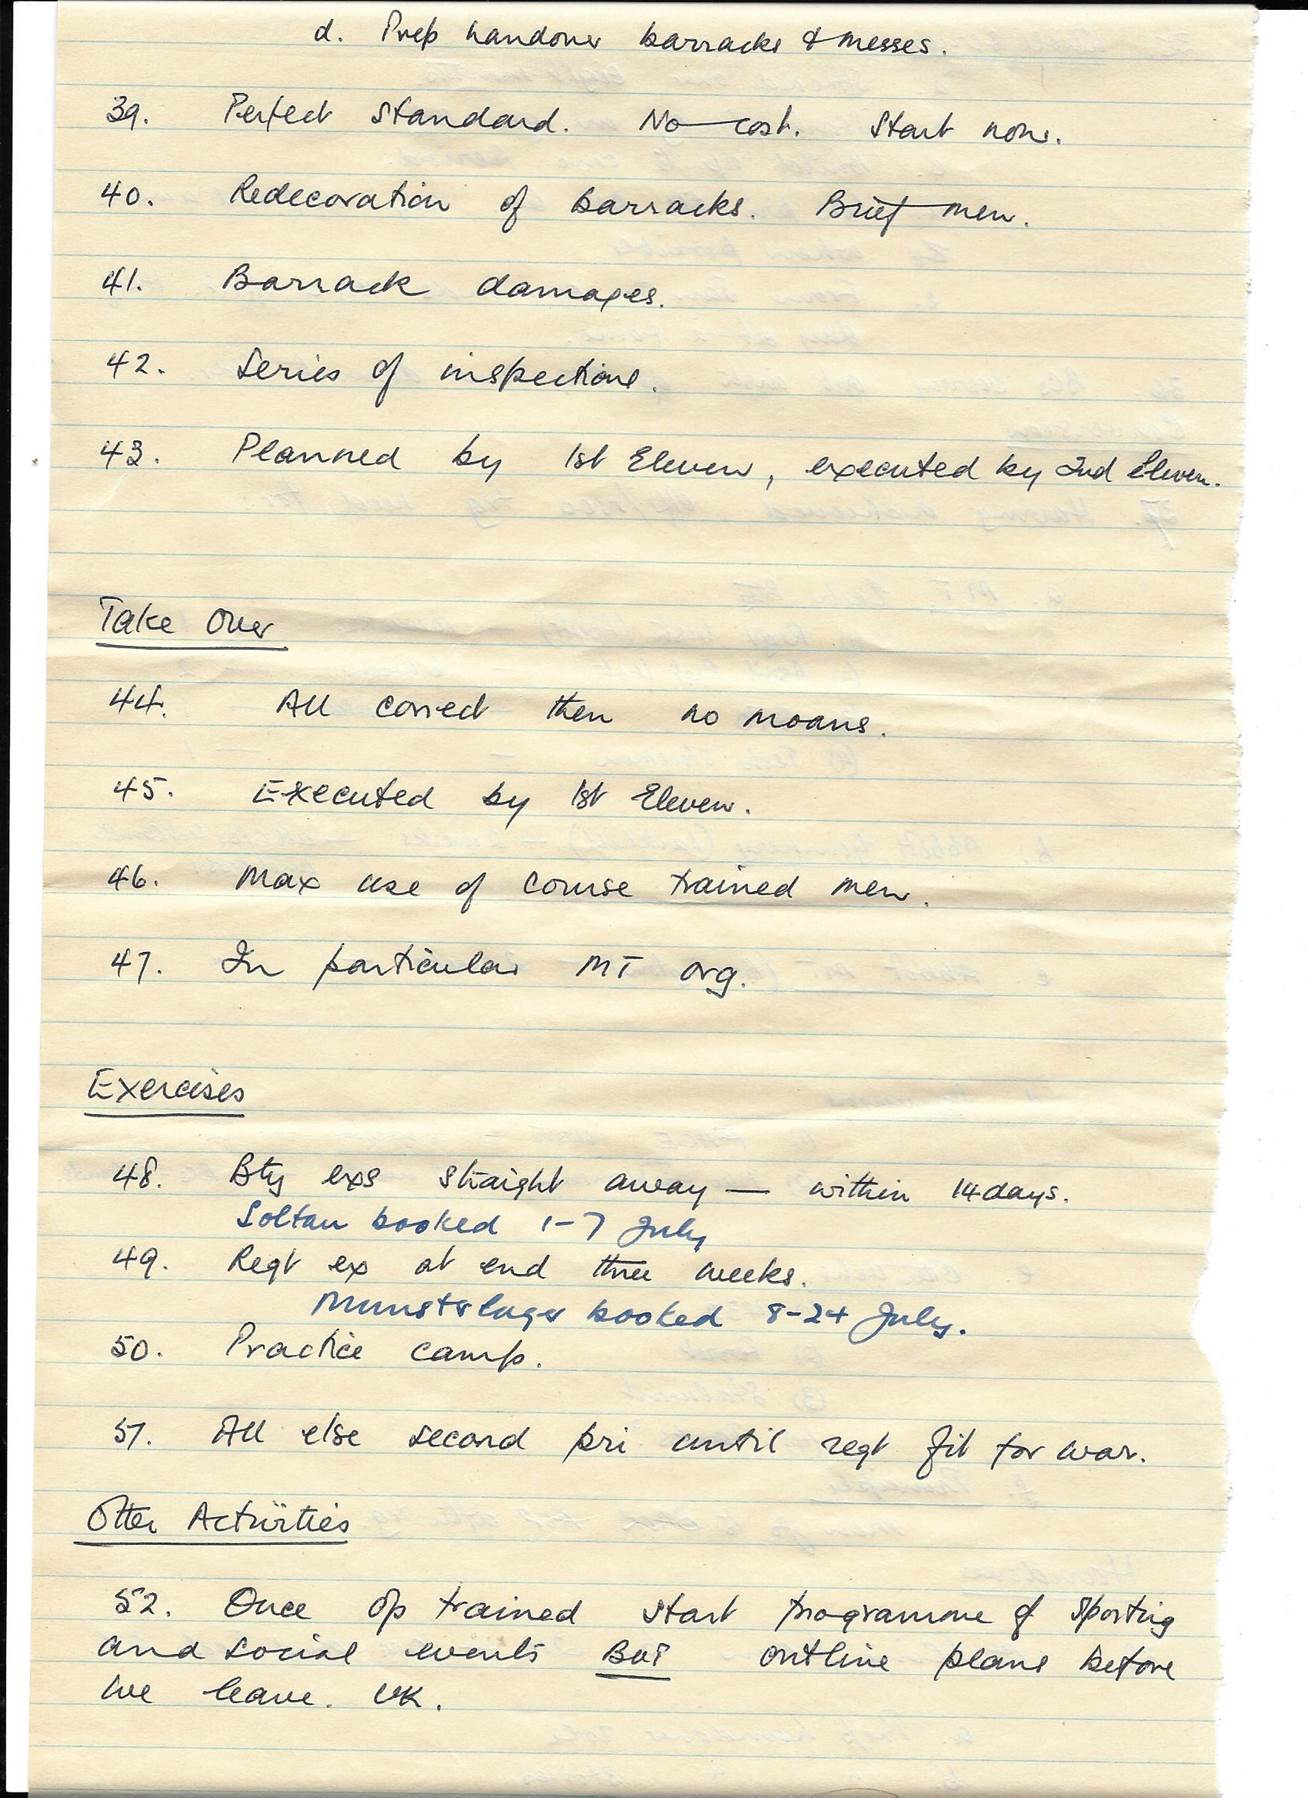 d. Prep handover barracks & messes.
39. Perfect standard. No cost. Start now.
40. Redecoration of barracks. Brief men.
41. Barrack damages.
42. Series of inspections.
43. Planned by 1st Eleven, executed by 2nd Eleven.
Take Over
44. All correct then no moans.
45. Executed by 1st Eleven.
46. Max use of course trained men.
47. In particular MT org.
Exercises
48. Bty exs straight away — within 14 days.
Soltau booked 1-7 July
49. Regt ex at end three weeks.
Munsterlager booked 8-24 July.
50. Practice camp.
51. All else second pri until regt fit for war.
Other Activities
52. Once op trained start programme of sporting
and social events BUT outline plans before
we leave. UK.